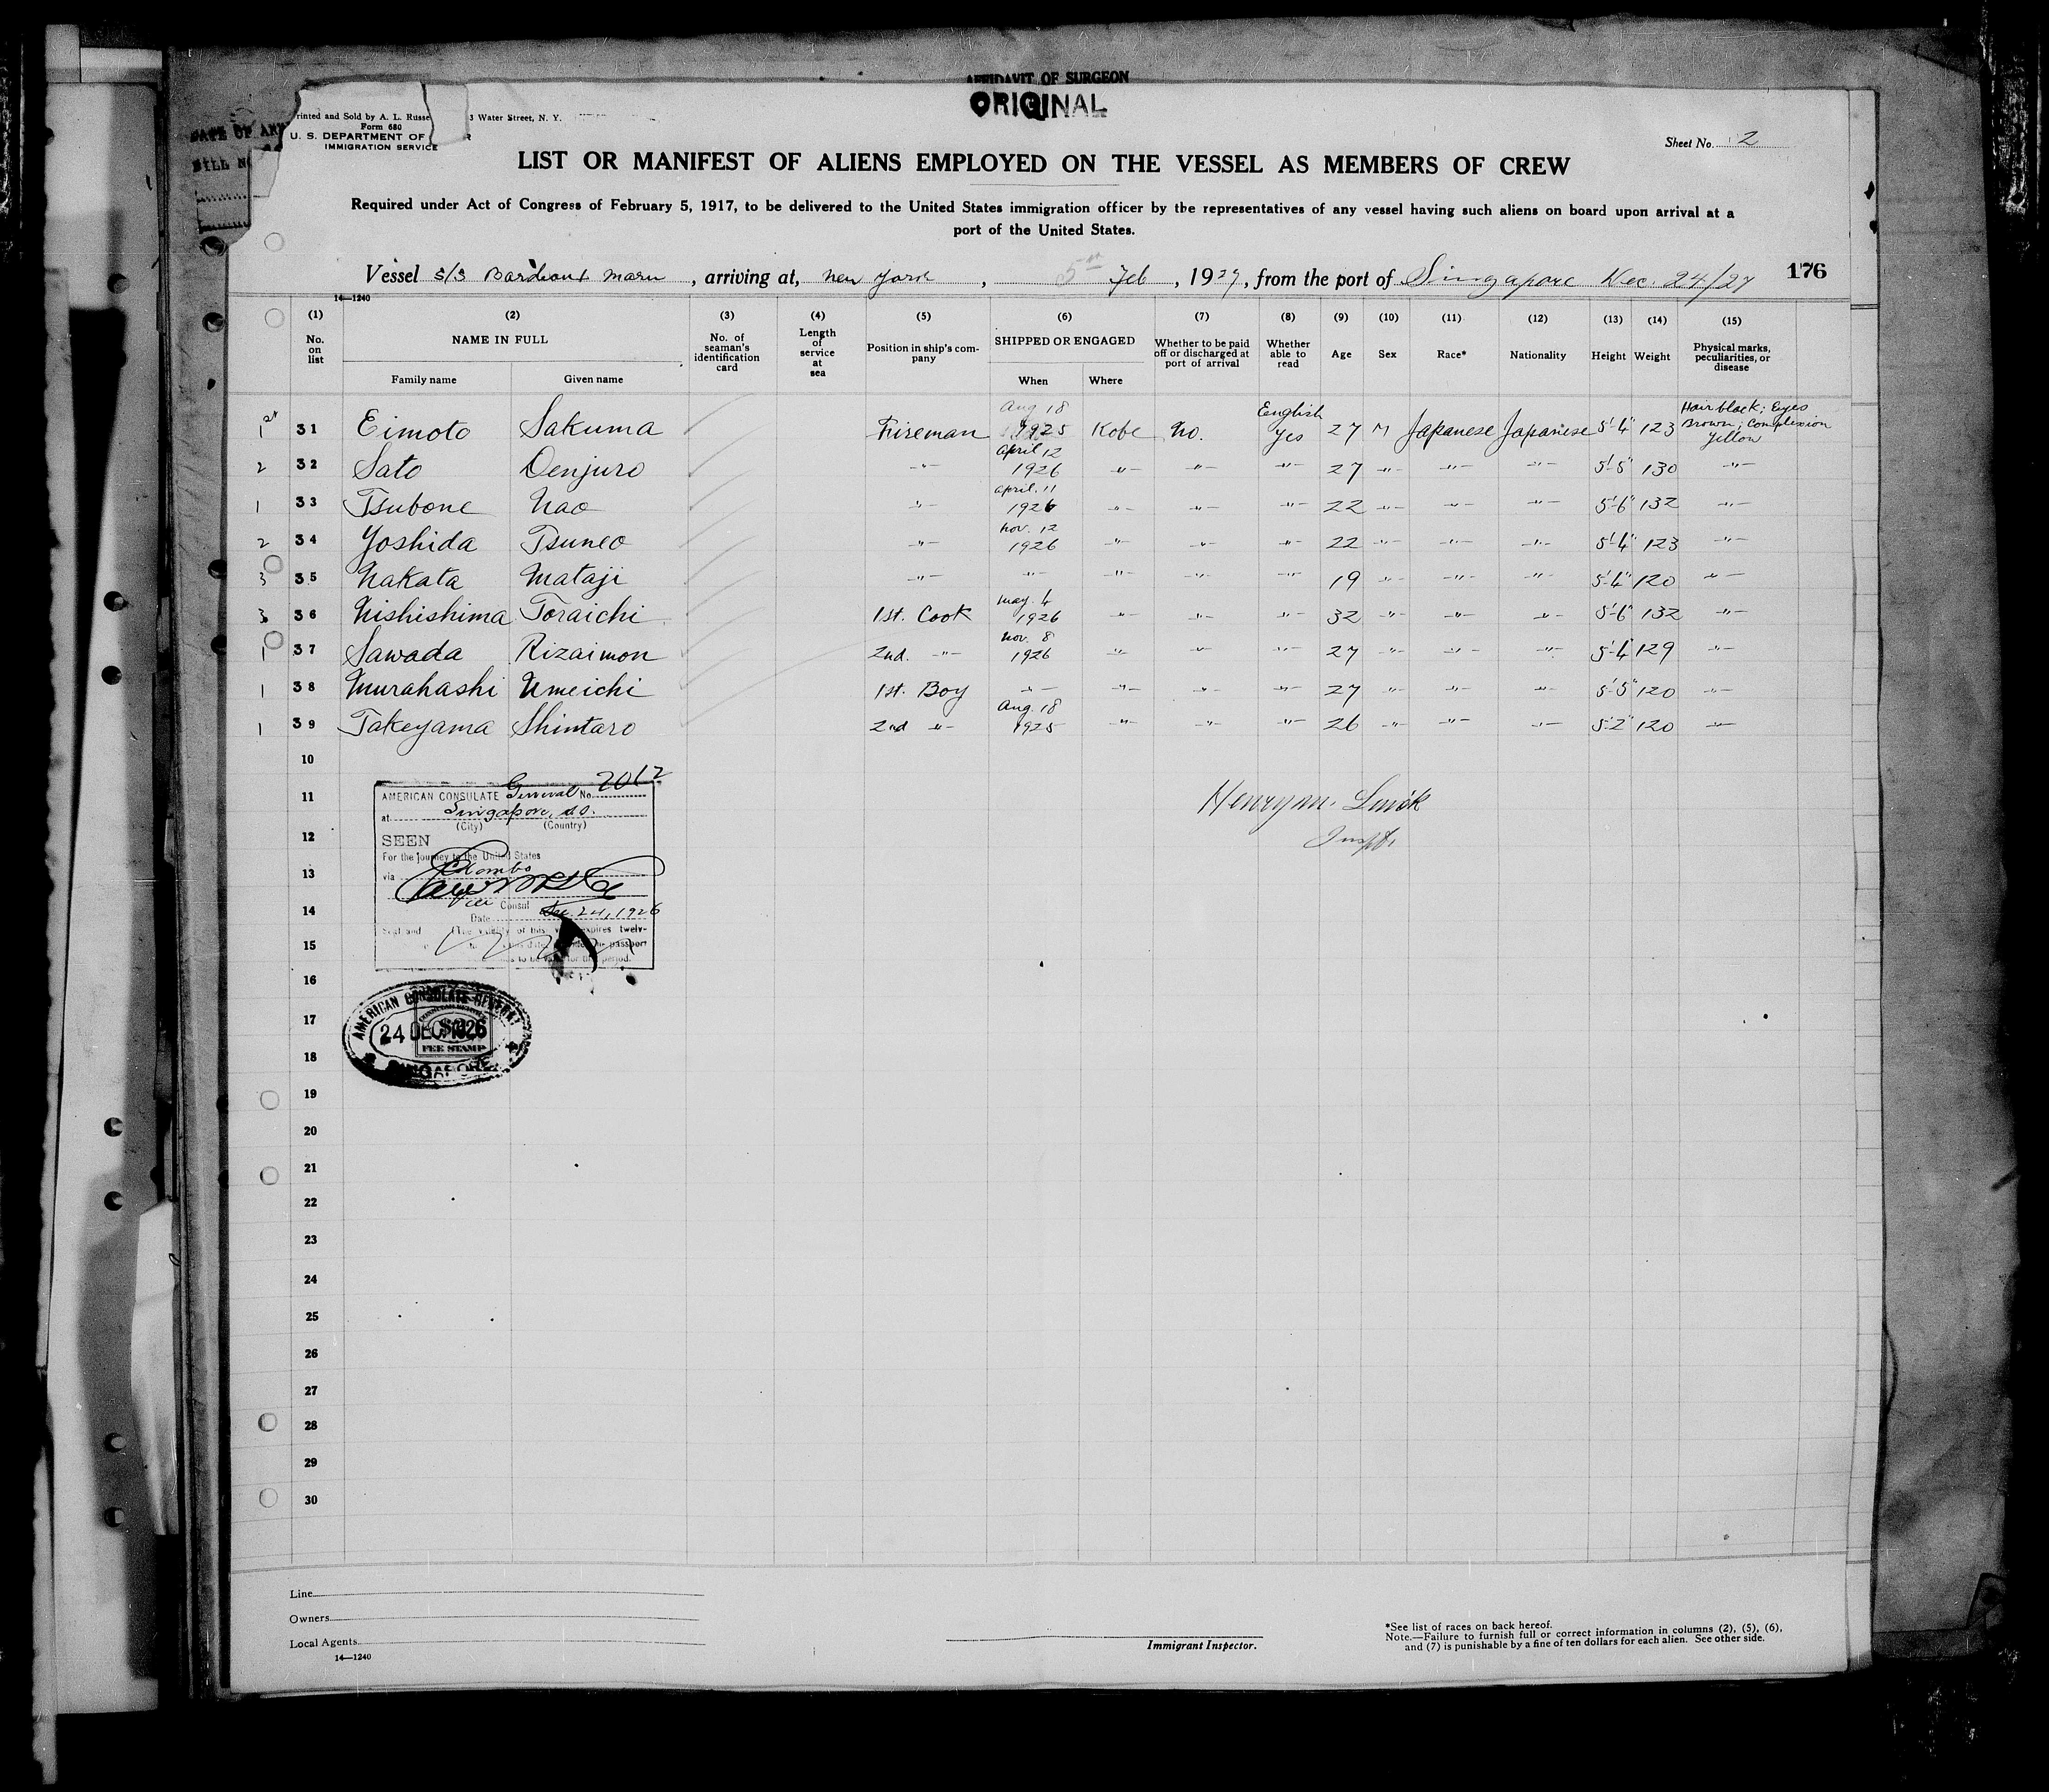 AFFIDAVIT OF SURGEON
ORIGINAL
Printed and Sold by A. L. Russe 3 Water Street, N. Y.
Form 680
U. S. DEPARTMENT OF
IMMIGRATION SERVICE
Sheet No. 2
LIST OR MANIFEST OF ALIENS EMPLOYED ON THE VESSEL AS MEMBERS OF CREW
Required under Act of Congress of February 5, 1917, to be delivered to the United States immigration officer by the representatives of any vessel having such aliens on board upon arrival at a
port of the United States.
Vessel S/S Maru, arriving at, New York, 5th Feb, 1927, from the port of Singapore Dec. 24/27 176
14—1240
(1) (2) (3) (4) (5) (6) (7) (8) (9) (10) (11) (12) (13) (14) (15)
No. on list NAME IN FULL Family name Given name No. of seaman's identification card Length of service at sea Position in ship's company SHIPPED OR ENGAGED When Where Whether to be paid off or discharged at port of arrival Whether able to read Age Sex Race* Nationality Height Weight Physical marks, peculiarities, or disease
31 Eimoto Sakuma Fireman Aug 18 1925 Kobe No. English Yes 27 M Japanese Japanese 5'-4" 123 Hair black; Eyes Brown; Complexion Yellow
2 32 Sato Denjuro -"- April 12 1926 -"- -"- -"- 27 -"- -"- -"- 5'-5" 130 -"-
1 33 Tsubone Nao -"- April. 11 1926 -"- -"- -"- 22 -"- -"- -"- 5'-6" 132 -"-
2 34 Yoshida Tsuneo -"- Nov. 12 1926 -"- -"- -"- 22 -"- -"- -"- 5'-4" 123 -"-
3 35 Nakata Mataji -"- -"- -"- -"- -"- 19 -"- -"- -"- 5'-4" 120 -"-
3 36 Nishishima Toraichi 1st. Cook May. 4 1926 -"- -"- -"- 32 -"- -"- -"- 5'-6" 132 -"-
1 37 Sawada Rizaimon 2nd. -"- Nov. 8 1926 -"- -"- -"- 27 -"- -"- -"- 5'-4" 129 -"-
1 38 Murahashi Umeichi 1st. Boy -"- -"- -"- -"- 27 -"- -"- -"- 5'-5" 120 -"-
1 39 Takeyama Shintaro 2nd -"- Aug. 18 1925 -"- -"- -"- 26 -"- -"- -"- 5'2" 120 -"-
10
11
12
13
14
15
16
17
18
19
20
21
22
23
24
25
26
27
28
29
30
AMERICAN CONSULATE General No. 2012
at Singapore, S.S.
(City) (Country)
SEEN
For the journey to the United States
via Colombo
Vice Consul
Date Dec. 24, 1926
AMERICAN CONSULATE GENERAL
24 DEC 1926
FEE STAMP
SINGAPORE
Henry M.
Inspt.
Line
Owners
Local Agents
14—1240
Immigrant Inspector.
*See list of races on back hereof.
Note.—Failure to furnish full or correct information in columns (2), (5), (6),
and (7) is punishable by a fine of ten dollars for each alien. See other side.